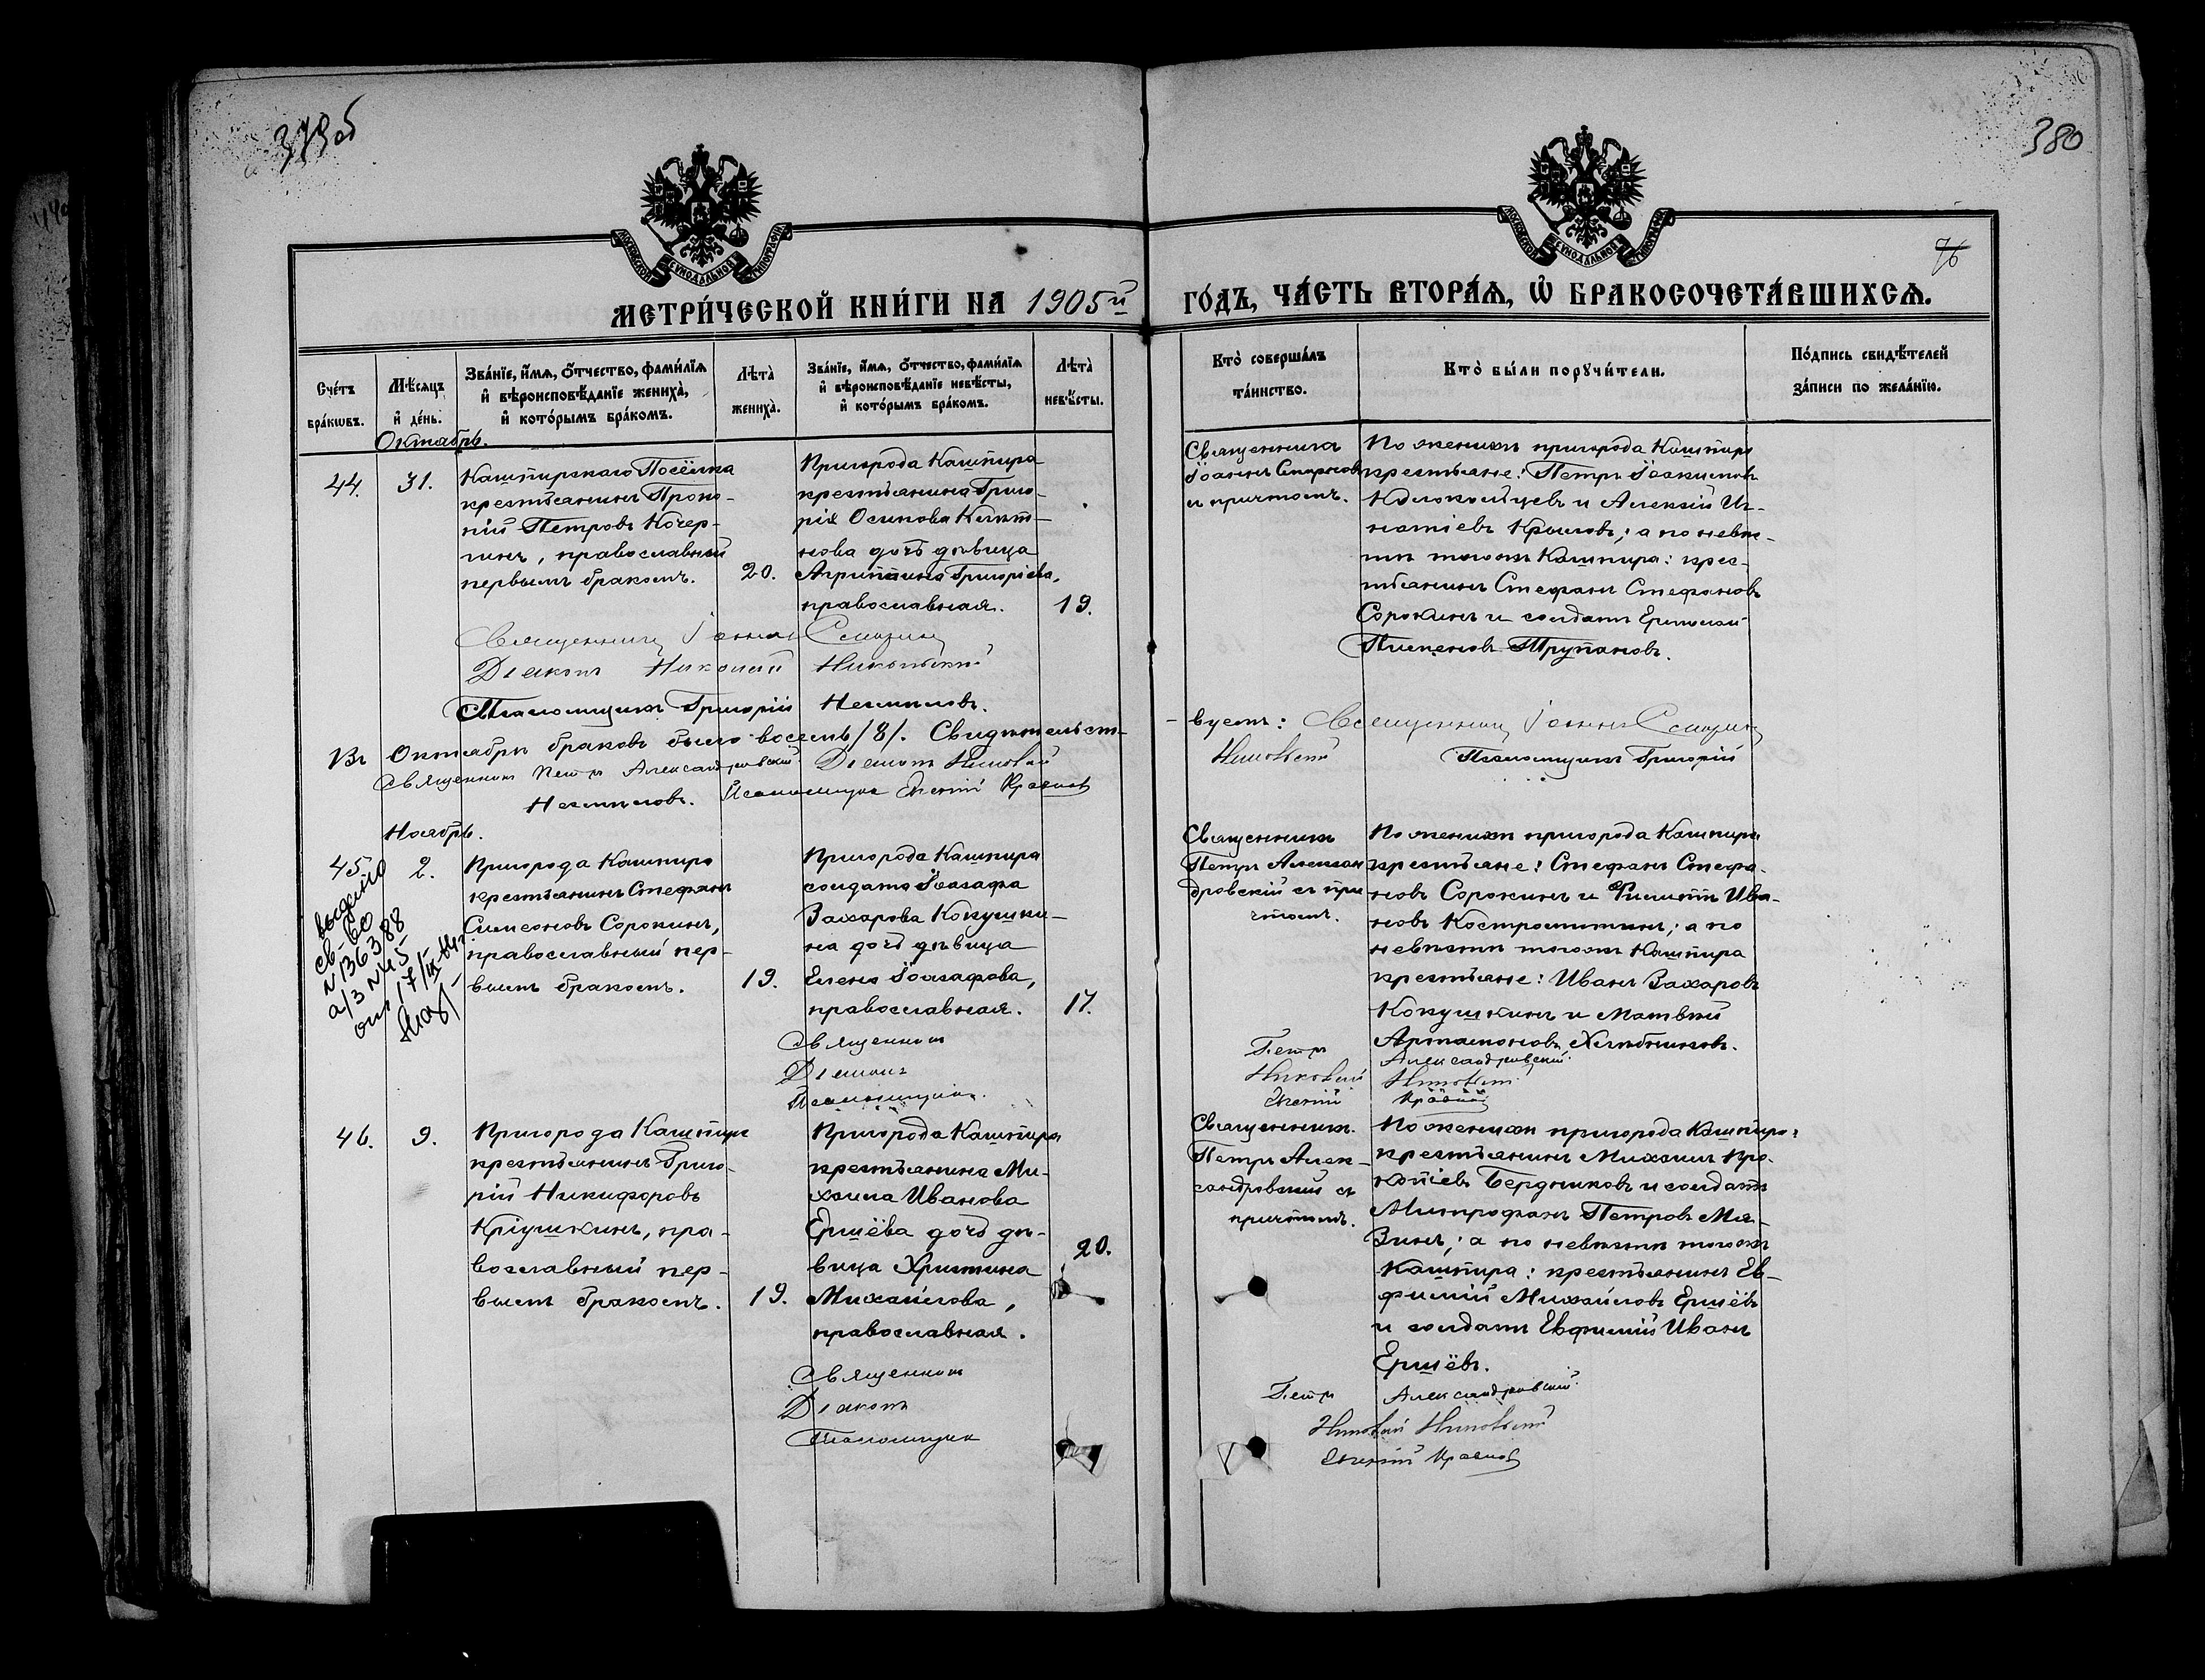 379об
380
76
МЕТРИ́ЧЕСКОЙ КНИ́ГИ НА 1905й ГО́ДЪ, ЧА́СТЬ ВТОРА́Ѧ, Ѽ БРАКОСОЧЕТА́ВШИХСѦ.
Сче́тъ бра́кѡвъ.
Мѣ́сѧцъ и҆ де́нь.
Зва́нїе, и҆́мѧ, ѻ҆́тчество, фами́лїѧ
и҆ вѣроисповѣ́данїе жениха̀,
и҆ кото́рымъ бра́комъ.
Лѣта̀ жениха̀.
Зва́нїе, и҆́мѧ, ѻ҆́тчество, фами́лїѧ
и҆ вѣроисповѣ́данїе невѣ́сты,
и҆ кото́рымъ бра́комъ.
Лѣта̀ невѣ́сты.
Кто̀ соверша́лъ
та́инство.
Кто̀ бы́ли порꙋчи́тели.
По́дпись свидѣ́телей
за́писи по жела́нїю.
Октябрь.
44.
31.
Кашпирскаго Посёлка
крестьянинъ Проко-
пій Петровъ Кочер-
гинъ, православный
первымъ бракомъ.
20.
Пригорода Кашпира
крестьянина Григо-
рія Осипова
дочь дѣвица
Агрипина Григорiева,
православная.
19.
Священникъ
Іоаннъ Смирновъ
съ причтомъ.
По женихѣ пригорода Кашпира
крестьяне: Петръ Іоакимовъ
Колокольцевъ и Алексій Иг-
натіевъ Крыловъ; а по невѣс-
тѣ того же Кашпира: крес-
тьянинъ Стефанъ Стефановъ
Сорокинъ и солдатъ Ермолай
Пименовъ Трупановъ.
Священникъ Іоаннъ Смирновъ
Діаконъ Николай Никольскій
Псаломщикъ Григорій Несмѣловъ.
Въ Октябрѣ браковъ было восемь /8/. Свидѣтельст-
вуемъ: Священникъ Іоаннъ Смирновъ
Священникъ Петръ Александровскій Діаконъ Николай
Никольскій Псаломщикъ Григорій
Несмѣловъ. Псаломщикъ Евгеній Красновъ
Ноябрь.
45.
2.
выдано
св-во
N 136388
а/з N 45
от 17/IX
Пригорода Кашпира
крестьянинъ Стефанъ
Симеоновъ Сорокинъ,
православный пер-
вымъ бракомъ.
19.
Пригорода Кашпира
солдата Іоасафа
Захарова Кокушки-
на дочь дѣвица
Елена Іоасафова,
православная.
17.
Священникъ
Петръ Алексан
дровскій съ при
чтомъ.
По женихѣ пригорода Кашпира
крестьяне: Стефанъ Стефа-
новъ Сорокинъ и Филиппъ Ива-
новъ Костромитинъ; а по
невѣстѣ того же Кашпира
крестьяне: Иванъ Захаровъ
Кокушкинъ и Матвѣй
Артамоновъ Хлѣбниковъ.
Священникъ Петръ Александровскій
Діаконъ Николай Никольскій
Псаломщикъ Евгеній Красновъ
46.
9.
Пригорода Кашпира
крестьянинъ Григо-
рій Никифоровъ
Кріушкинъ, пра-
вославный пер-
вымъ бракомъ.
19.
Пригорода Кашпира
крестьянина Ми-
хаила Иванова
Ершёва дочь дѣ-
вица Христина
Михайлова,
православная.
20.
Священникъ
Петръ Алек-
сандровскій съ
причтомъ.
По женихѣ пригорода Кашпира:
крестьянинъ Михаилъ Про-
копіевъ Бердниковъ и солдатъ
Митрофанъ Петровъ Мя-
зинъ; а по невѣстѣ того же
Кашпира: крестьянинъ Ев-
фимій Михайловъ Ершёвъ
и солдатъ Евфимій Иванъ
Ершёвъ.
Священникъ Петръ Александровскій
Діаконъ Николай Никольскій
Псаломщикъ Евгеній Красновъ